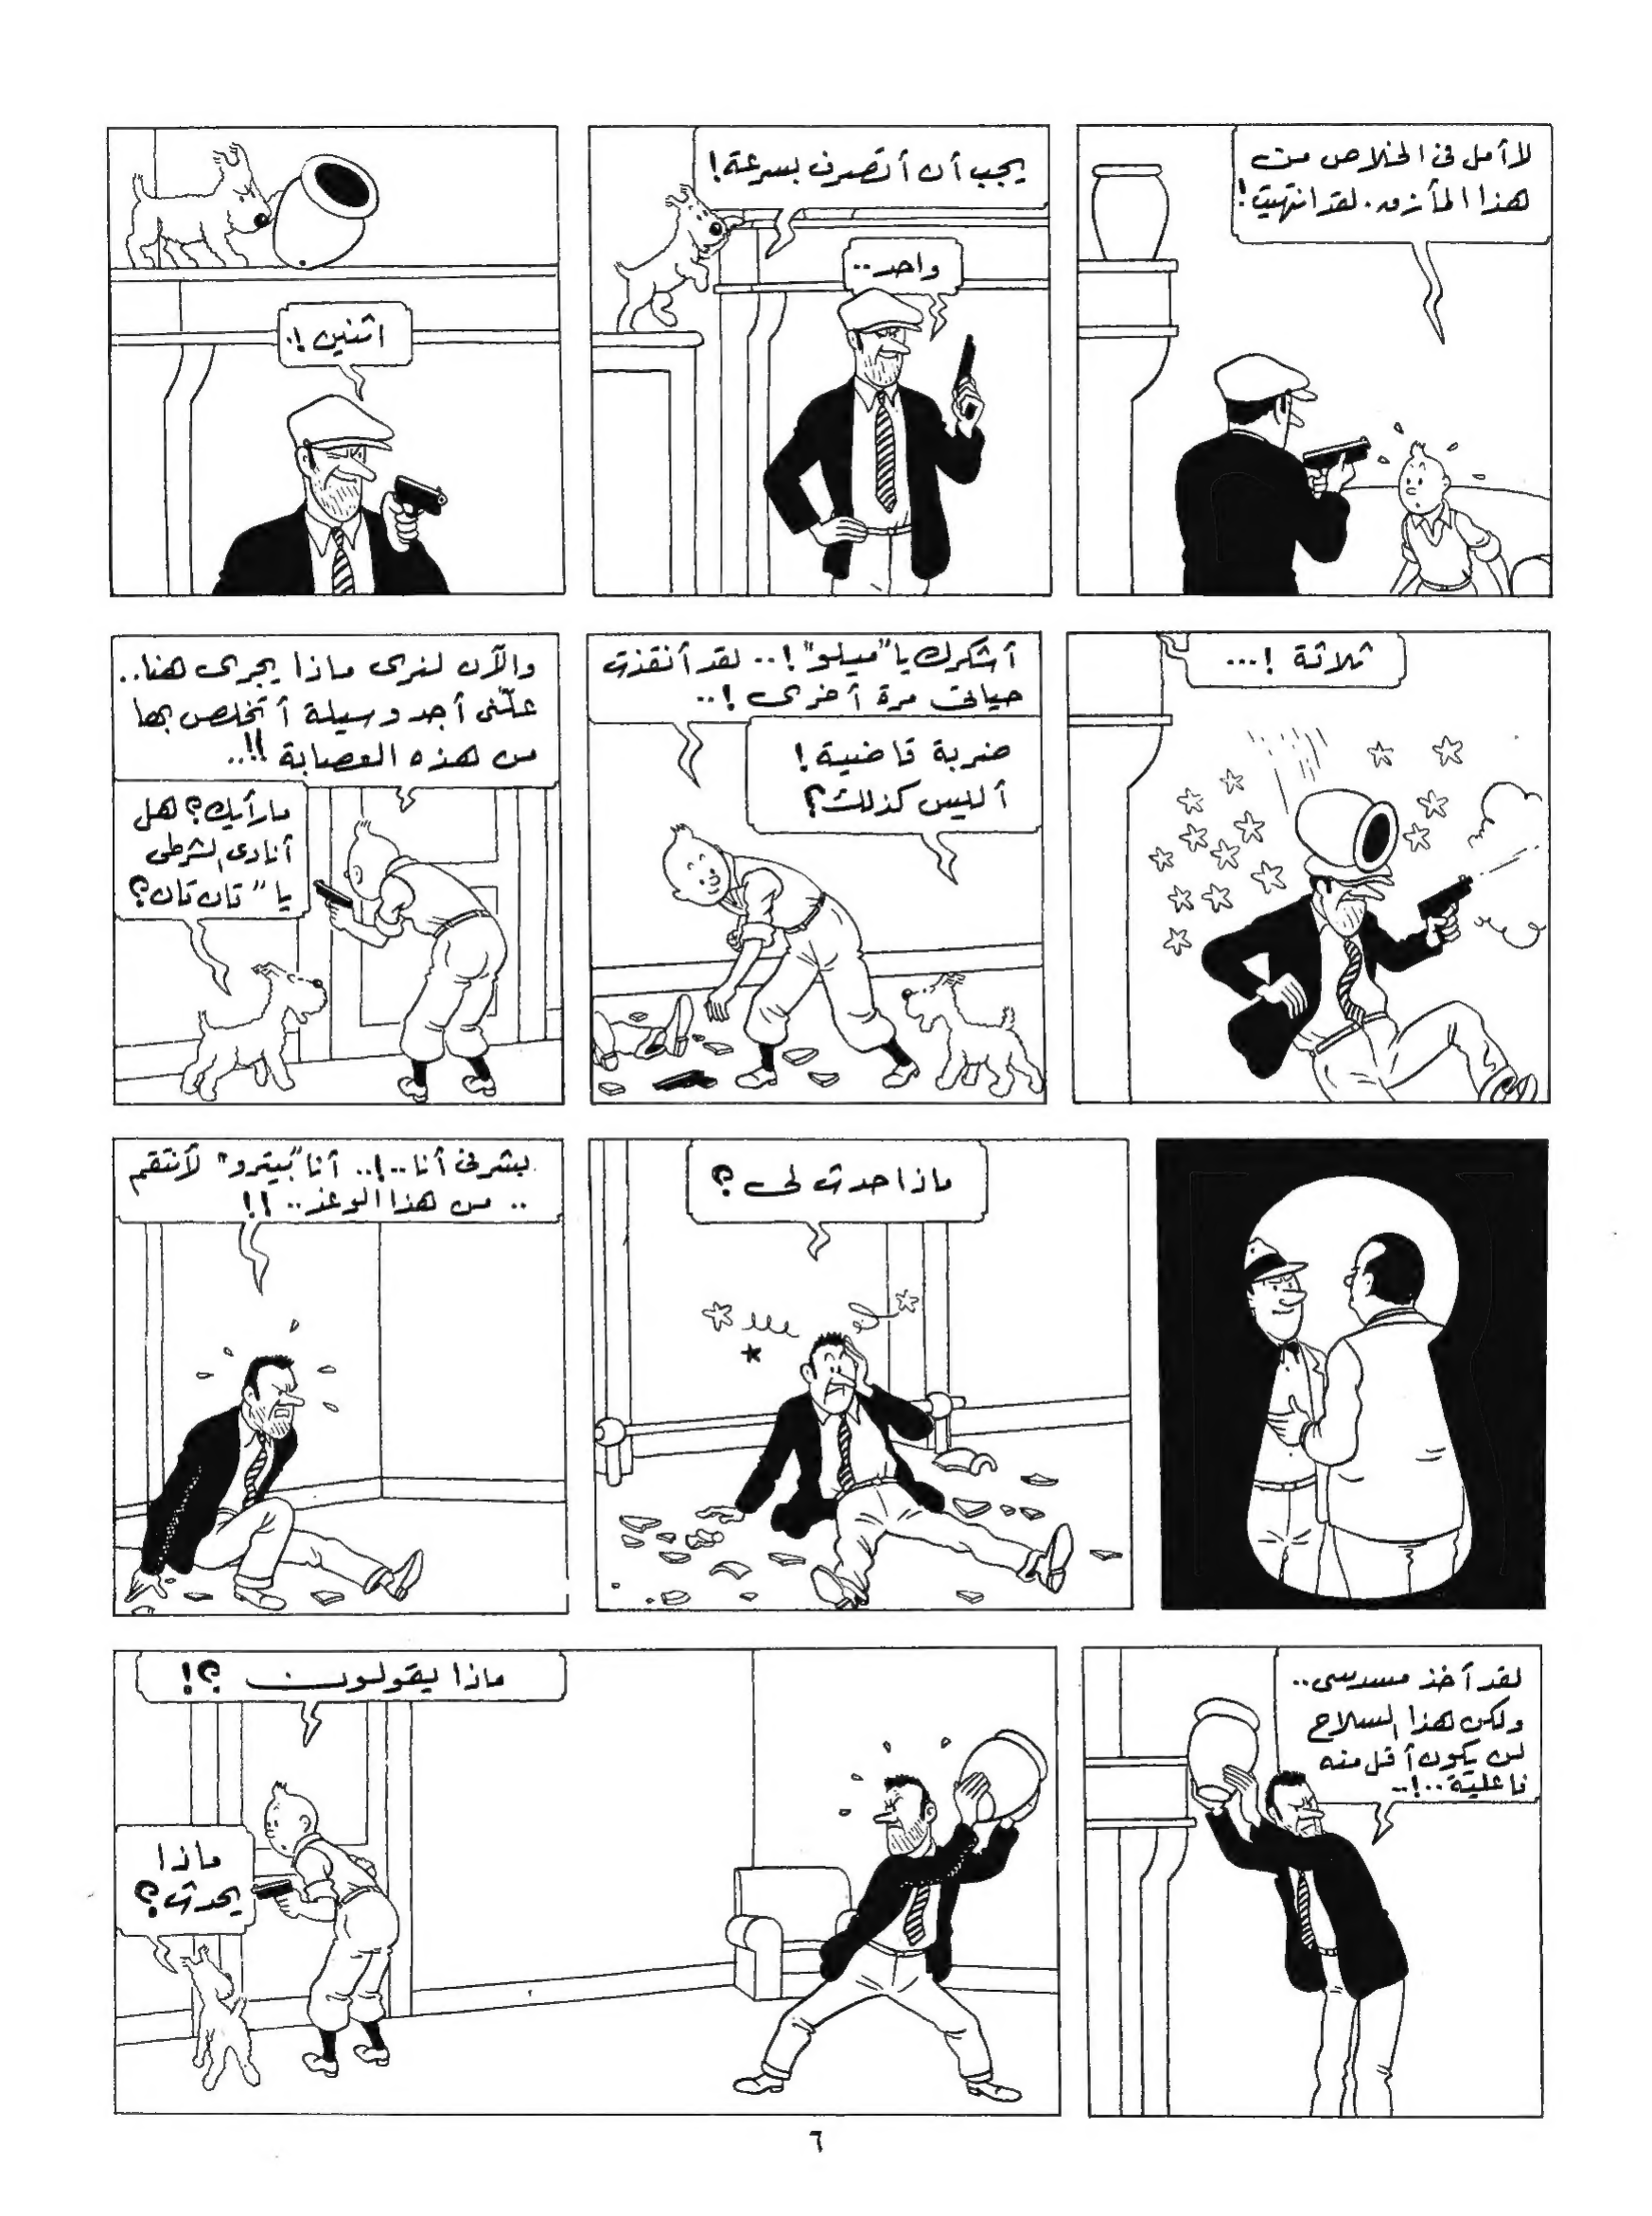 لا أمل فى الخلاص من
هذا المأزق. لقد انتهيت!
يجب أن أتصرف بسرعة!
واحد..
اثنين!.
ثلاثة !...
أشكرك يا "ميلو"!.. لقد أنقذت
حياتى مرة أخرى !..
ضربة قاضية!
أليس كذلك؟
والآن لنرى ماذا يجرى هنا..
علّنى أجد وسيلة أتخلص بها
من هذه العصابة !!..
ما رأيك؟ هل
أنادى الشرطى
يا "تان تان؟
ماذا حدث لى ؟
بشرفى أنا..!.. أنا "بيترو" لأنتقم
.. من هذا الوغد.. !!
لقد أخذ مسدسى..
ولكن هذا السلاح
لن يكون أقل منه
فاعلية..!..
ماذا يقولون ؟!
ماذا
يحدث؟
٦